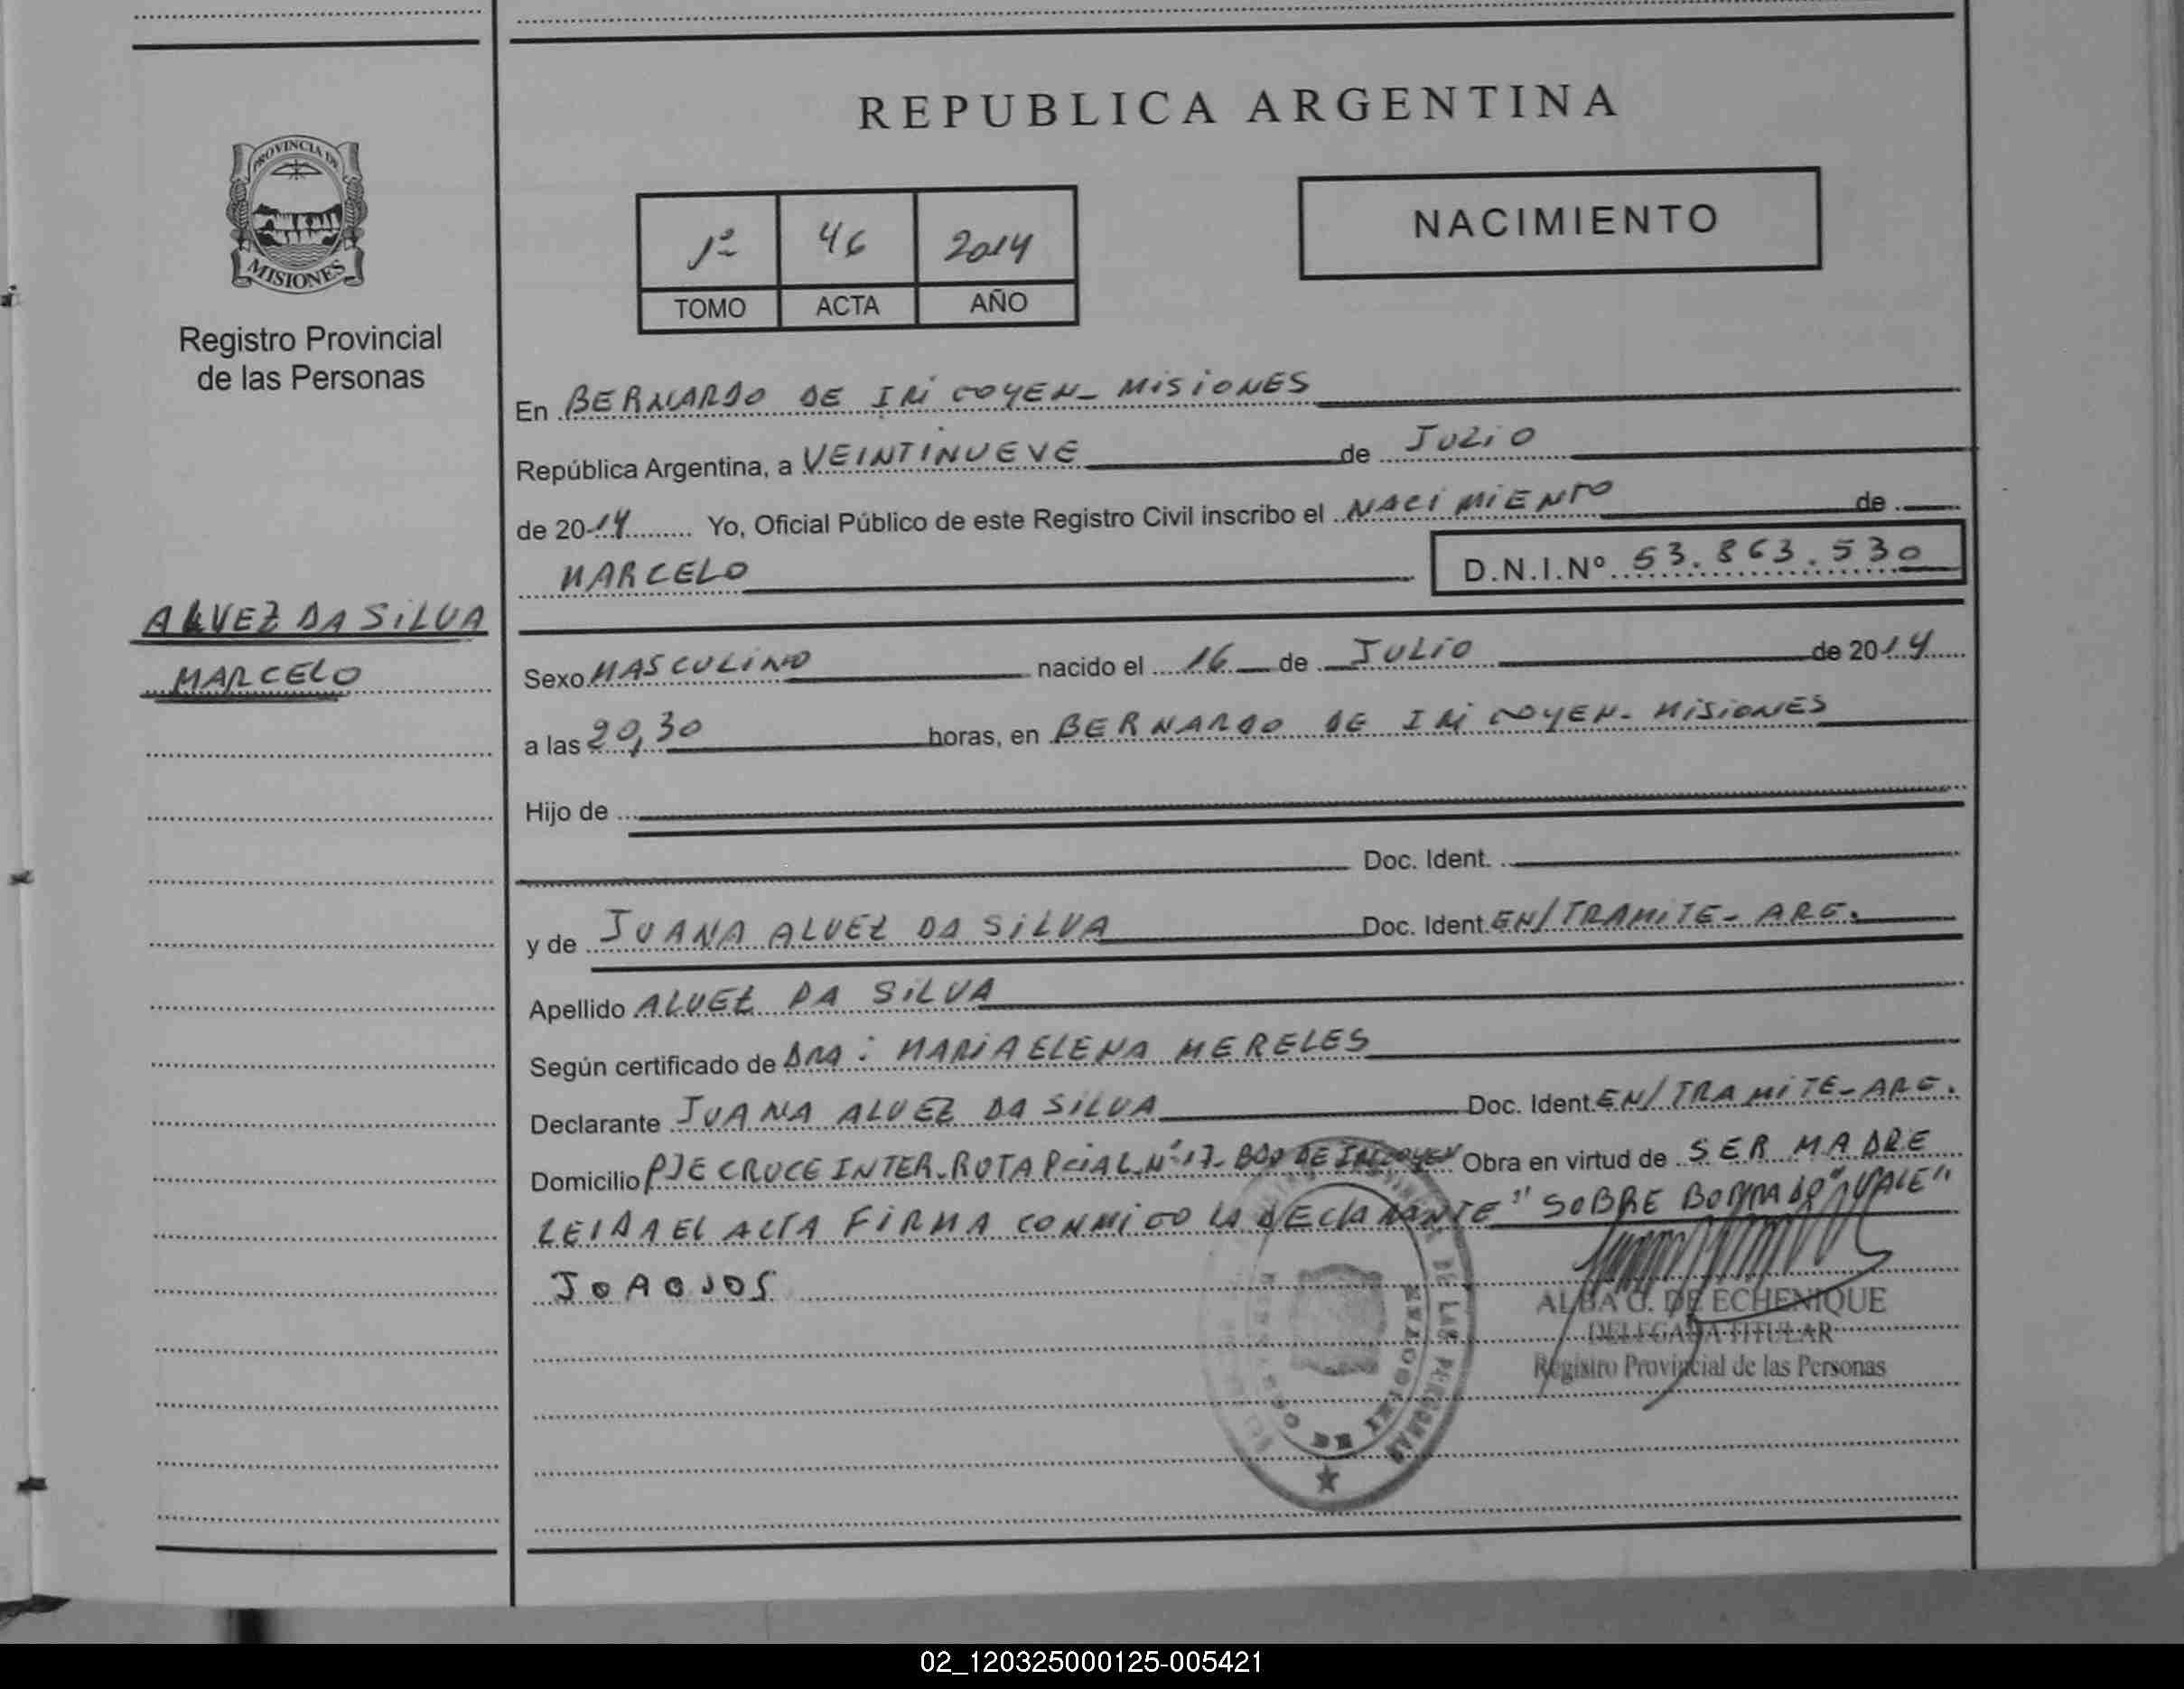 REPUBLICA ARGENTINA
PROVINCIA DE
MISIONES
Registro Provincial
de las Personas
1º 46 2014
TOMO ACTA AÑO
NACIMIENTO
En BERNARDO DE IRIGOYEN - MISIONES
República Argentina, a VEINTINUEVE de JULIO
de 2014 Yo, Oficial Público de este Registro Civil inscribo el NACIMIENTO de
MARCELO D.N.I.Nº 53.863.530
ALVEZ DA SILVA
MARCELO
Sexo MASCULINO nacido el 16 de JULIO de 2014
a las 20,30 horas, en BERNARDO DE IRIGOYEN - MISIONES
Hijo de
Doc. Ident.
y de JUANA ALVEZ DA SILVA Doc. Ident. EN/TRAMITE - ARG.
Apellido ALVEZ DA SILVA
Según certificado de DRA: MARIA ELENA MERELES
Declarante JUANA ALVEZ DA SILVA Doc. Ident. EN/TRAMITE - ARG.
Domicilio PJE CRUCE INTER. RUTA PCIAL Nº 17 - BDO DE IRIGOYEN Obra en virtud de SER MADRE
LEIDA EL ACTA FIRMA CONMIGO LA DECLARANTE "SOBRE BORRADO "VALE"
ALBA G. DE ECHENIQUE
DELEGADA TITULAR
Registro Provincial de las Personas
DE LAS PERSONAS
02_120325000125-005421